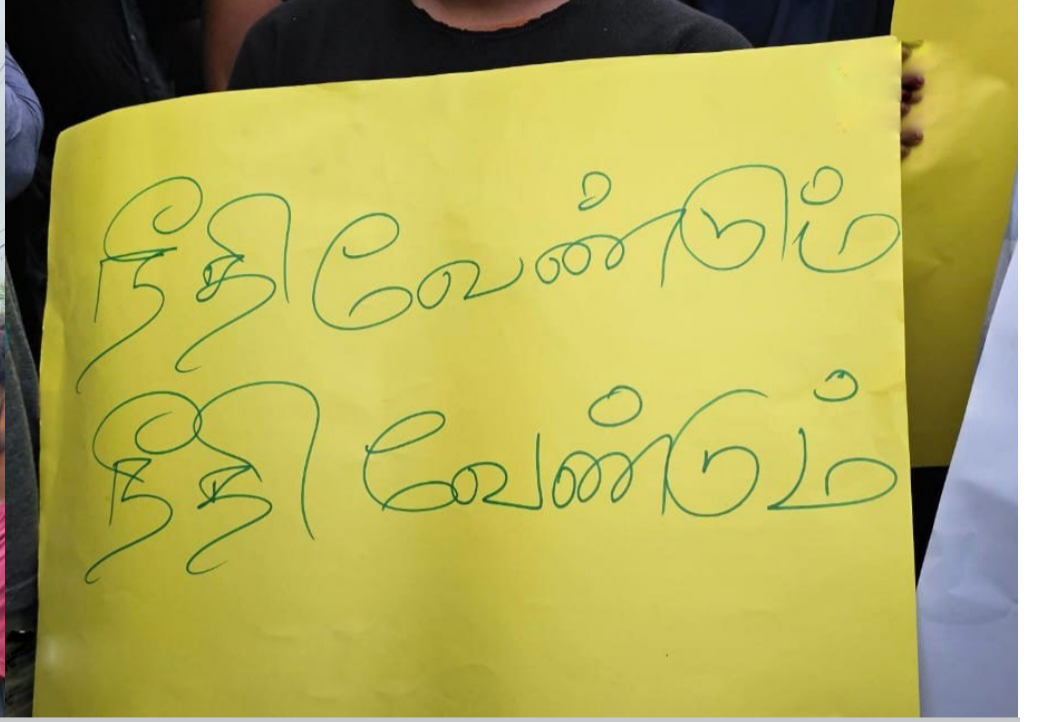 நீதி வேண்டும்
நீதி வேண்டும்